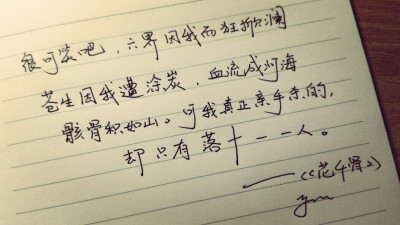 很可笑吧,六界因我而狂澜
苍生因我遭涂炭,血流成河海
骸骨积如山。可我真正亲手杀的,
却只有落十一一人。
——《花千骨》
ym